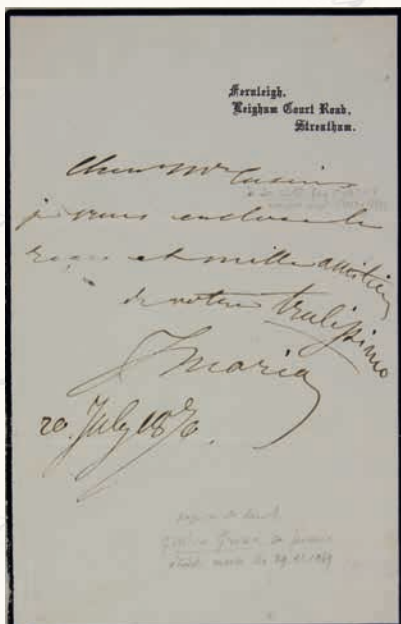 Fernleigh,
Leigham Court Road,
Streatham.
Cher Mr Cusins
je vous enclose le
reçu et mille amitiés
de votre trulissimo
Mario
20 July 1870.